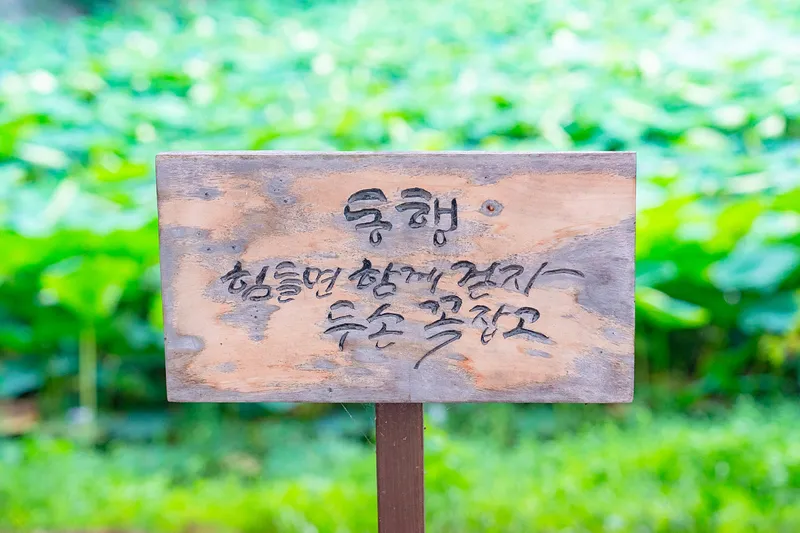 동행
힘들면 함께 걷자
두손 꼭잡고